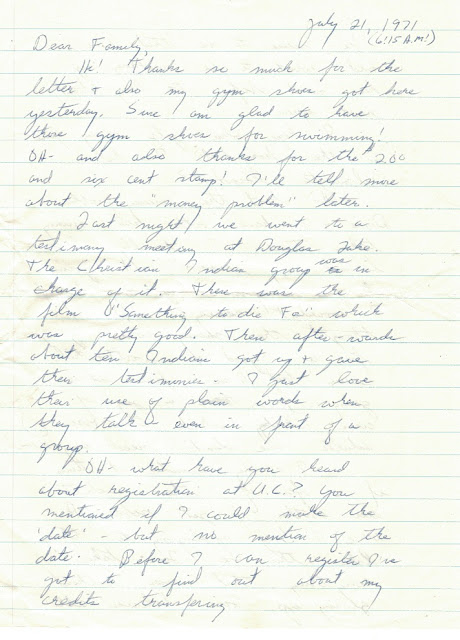 July 21, 1971
(6:15 A.M!)
Dear Family,
Hi! Thanks so much for the
letter & also my gym shoes got here
yesterday. Sure am glad to have
those gym shoes for swimming!
OH- and also thanks for the $2.00
and six cent stamp! I'll tell more
about the "money problem" later.
Last night we went to a
testimony meeting at Douglas Lake.
The Christian Indian group was in
charge of it. There was the
film "Something to die For" which
was pretty good. Then after-wards
about ten Indians got up & gave
their testimonies. I just love
their use of plain words when
they talk - even in front of a
group.
OH- what have you heard
about registration at U.C.? You
mentioned if I could make the
'date' - but no mention of the
date. Before I can register I've
got to find out about my
credits transfering